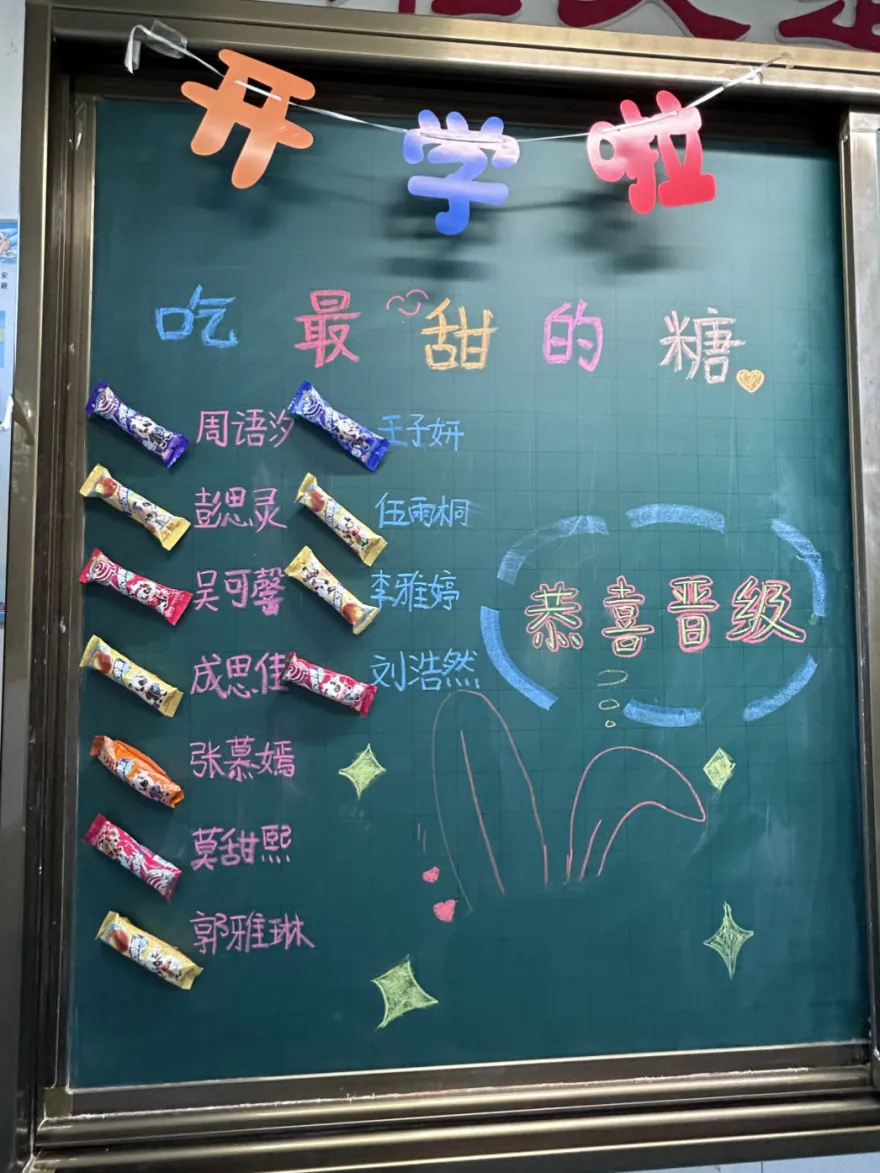 开学啦
吃最甜的糖
周语汐 王子妍
彭思灵 伍雨桐
吴可馨 李雅婷
成思佳 刘浩然
张慕嫣
莫甜熙
郭雅琳
恭喜晋级